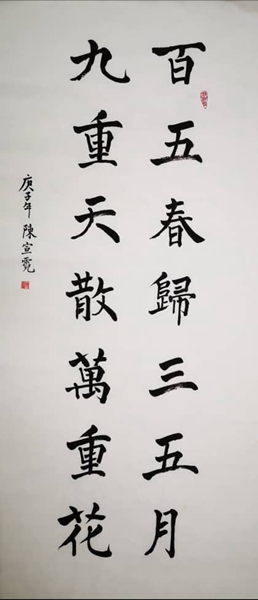 百五春歸三五月
九重天散萬重花
庚子年 陳宣霓